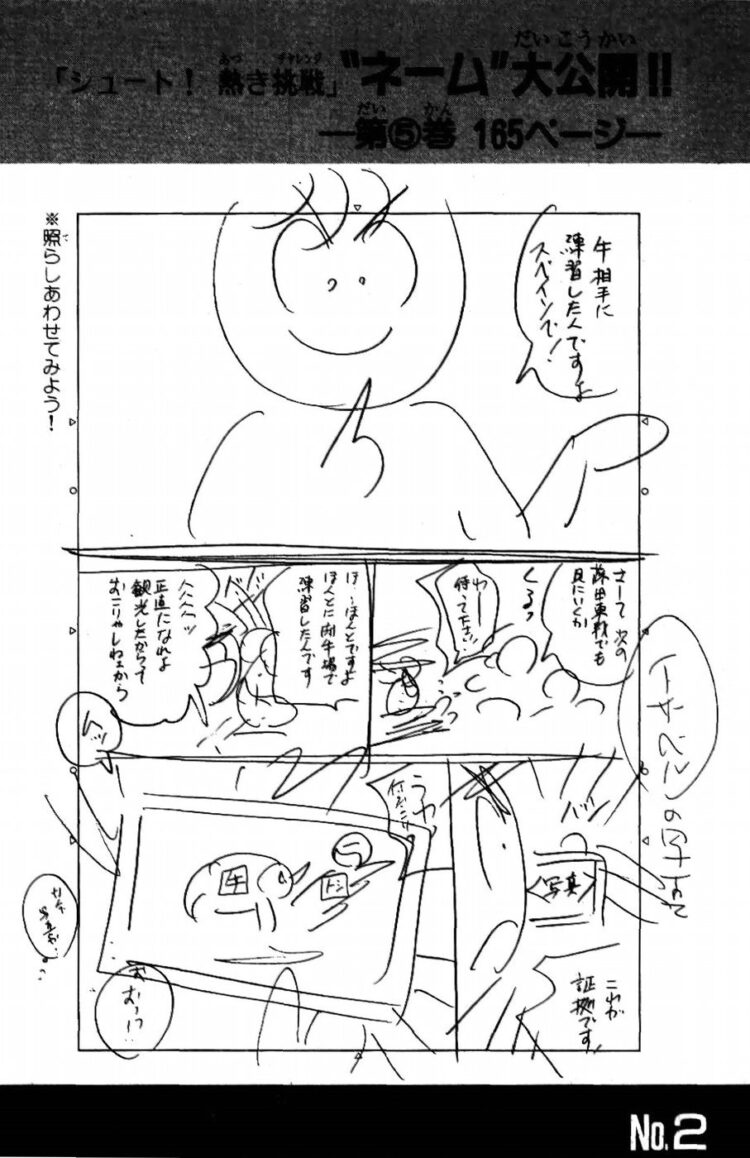 「シュート！ 熱き挑戦」"ネーム"大公開!!
あつ チャレンジ だいこうかい
―第⑤巻 165ページ―
だい かん
※照らしあわせてみよう！
て
牛相手に
練習した人ですよ
スペインで！
さーて 次の
藤田東校でも
見にいくか
くるっ
わー
待って下さい!
ほ、ほんとですよ
ほんとに闘牛場で
練習したんです
へへへへッ
正直になれよ
観光したからって
おこりゃしねェから
バッ
〈写真〉
これが
証拠です!
うわ
牛
トシ
おおーっ!!
No.2